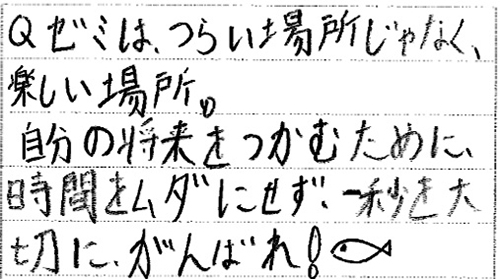 Qゼミは、つらい場所じゃなく、
楽しい場所。
自分の将来をつかむために、
時間をムダにせず、一秒を大
切に、がんばれ!